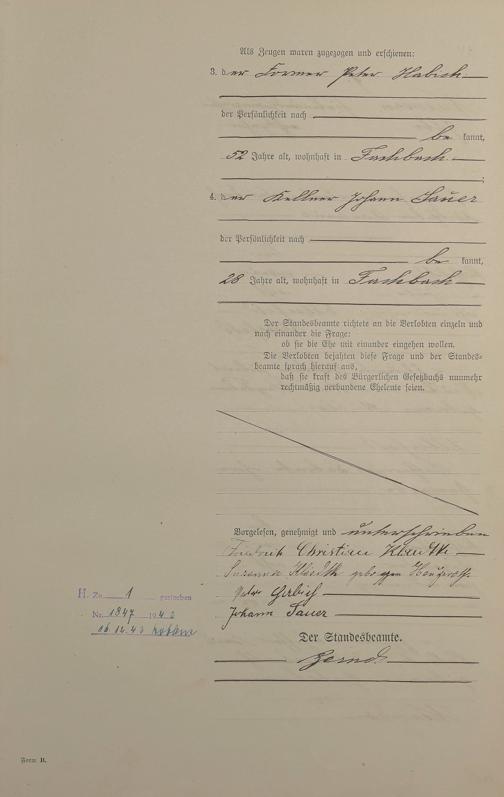 Als Zeugen waren zugezogen und erschienen:
3. der Former Peter Habich
der Persönlichkeit nach
be kannt,
52 Jahre alt, wohnhaft in Fachbach
4. der Kellner Johann Sauer
der Persönlichkeit nach
be kannt,
28 Jahre alt, wohnhaft in Fachbach
Der Standesbeamte richtete an die Verlobten einzeln und
nach einander die Frage:
ob sie die Ehe mit einander eingehen wollen.
Die Verlobten bejahten diese Frage und der Standes-
beamte sprach hierauf aus,
daß sie kraft des Bürgerlichen Gesetzbuchs nunmehr
rechtmäßig verbundene Eheleute seien.
Vorgelesen, genehmigt und unterschrieben
Friedrich Christian
Susanna geborgen
Peter Habich
Johann Sauer
H. Zu 1 gestorben
Nr. 1847 1943
06.12.43
Der Standesbeamte.
Form B.